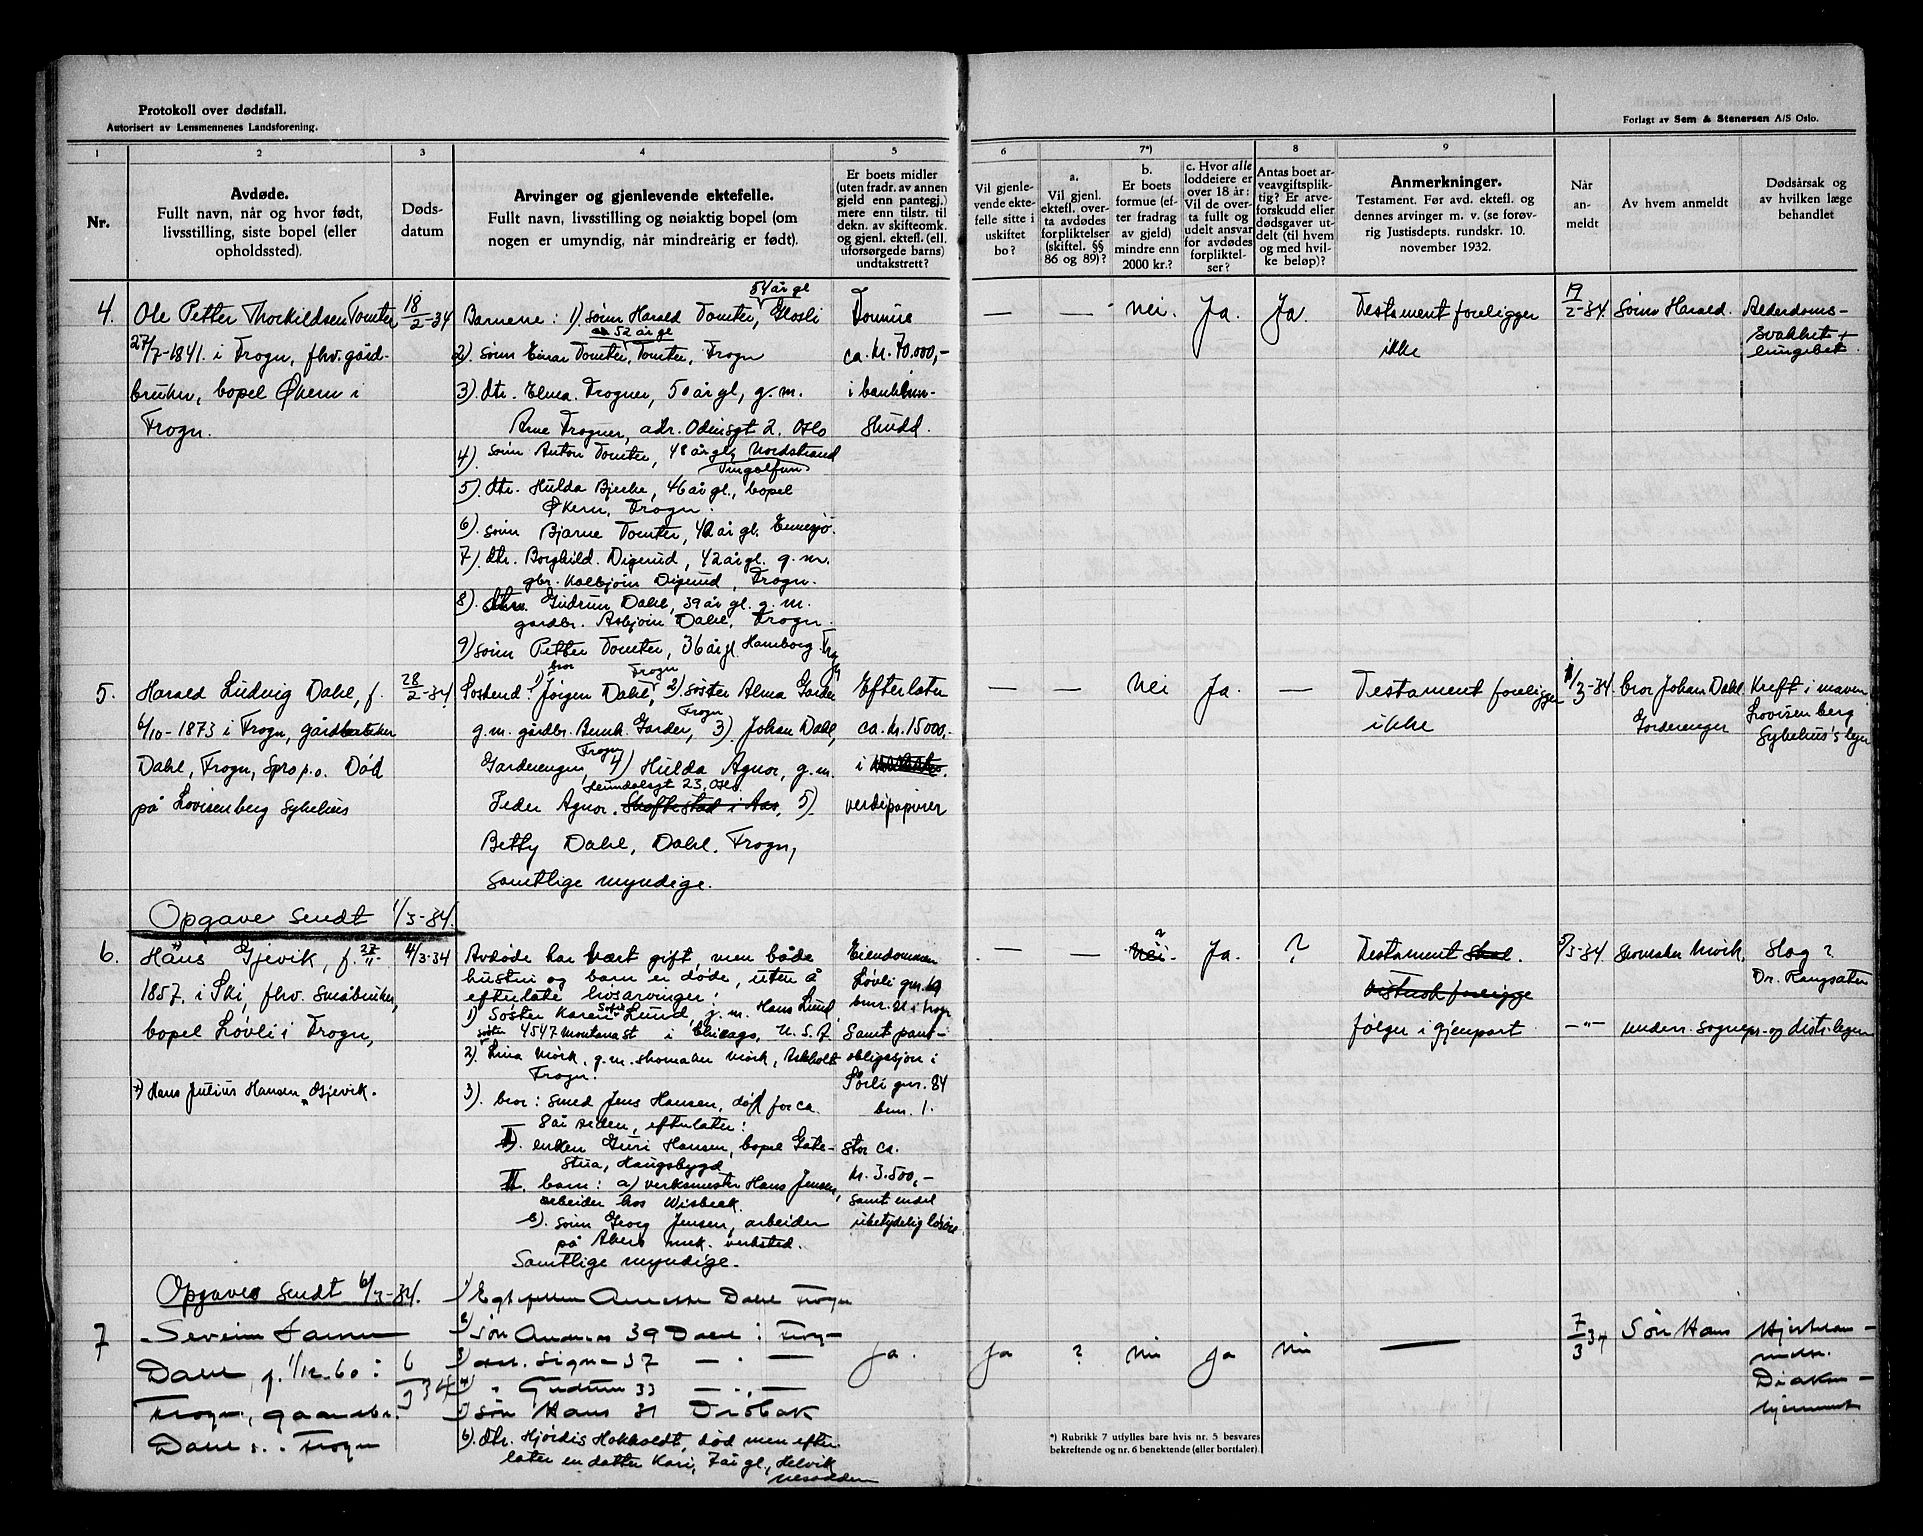 Protokoll over dødsfall.
Autorisert av Lensmennenes Landsforening.
Forlagt av Sem & Stenersen A/S Oslo.
1 2 3 4 5 6 7*) 8 9
Nr.
Avdøde.
Fullt navn, når og hvor født,
livsstilling, siste bopel (eller
opholdssted).
Døds-
datum
Arvinger og gjenlevende ektefelle.
Fullt navn, livsstilling og nøiaktig bopel (om
nogen er umyndig, når mindreårig er født).
Er boets midler
(uten fradr. av annen
gjeld enn pantegj.)
mere enn tilstr. til
dekn. av skifteomk.
og gjenl. ektefl. (ell.
uforsørgede barns)
undtakstrett?
Vil gjenle-
vende ekte-
felle sitte i
uskiftet
bo?
a.
Vil gjenl.
ektefl. over-
ta avdødes
forpliktelser
(skiftel. §§
86 og 89)?
b.
Er boets
formue (ef-
ter fradrag
av gjeld)
mindre enn
2000 kr.?
c. Hvor alle
loddeiere er
over 18 år:
Vil de over-
ta fullt og
udelt ansvar
for avdødes
forpliktel-
ser?
Antas boet ar-
veavgiftsplik-
tig? Er arve-
forskudd eller
dødsgaver ut-
delt (til hvem
og med hvil-
ke beløp)?
Anmerkninger.
Testament. Før avd. ektefl. og
dennes arvinger m. v. (se forøv-
rig Justisdepts. rundskr. 10.
november 1932.
Når
an-
meldt
Av hvem anmeldt
Dødsårsak og
av hvilken læge
behandlet
4.
Ole Petter Thorkildsen Tomter
27/7-1841. i Frogn, fhv. gård-
bruker, bopel Økern i
Frogn.
18/2-34
54 år gl
Barnene: 1) sønn Harald Tomter, Glosli
52 år gl
2). sønn Einar Tomter, Tomter, Frogn
3). dtr. Elma Frogner, 50 år gl, g. m.
Arne Frogner, adr. Odinsgt 2. Oslo
4). sønn Anton Tomter, 48 år gl, Nordstrand
5). dtr. Hulda Bjerke, 46 år gl., bopel
Økern, Frogn.
6). sønn Bjarne Tomter, 42 år gl.
7). dtr. Borghild Digerud, 42 år gl. g. m.
gbr. Kolbjørn Digerud, Frogn.
8). Gudrun Dahl, 39 år gl. g. m.
gardbr. Asbjørn Dahl, Frogn.
9) sønn Petter Tomter, 36 år gl. Hamborg Frogn
Formue
ca. kr. 70.000,-
i bankinn-
skudd.
— — Nei. Ja. Ja
Testament foreligger
ikke
19/2-34.
Sønn Harald.
Alderdoms-
svakhet +
lungebet.
5.
Harald Ludvig Dahl, f.
6/10-1873 i Frogn, gårdbruker
Dahl, Frogn, Spro p.o. Død
på Lovisenberg sykehus
28/2-34
bror Frogn
Søskend: 1) Jørgen Dahl, 2) søster Alma Garder
Frogn
g.m. gårdbr. Bernh. Garder, 3) Johan Dahl,
Frogn
Garderenger, 4) Hulda Agnor, g.m.
Heimdalsgt 23, Oslo.
Peder Agnor, Skoftestad i Aas, 5)
Betty Dahl, Dahl, Frogn,
samtlige myndige.
Efterlater
ca. kr. 15000,-
i
verdipapirer
— — Nei Ja. —
Testament foreligger
ikke
1/3-34.
bror Johan Dahl
Garderenger
Kreft i maven
Lovisenberg
Sykehus's læge
Opgave sendt 1/3-34.
6.
Hans Gjevik, f. 27/11
1857, i Ski, fhv. småbruker,
bopel Løvli i Frogn,
*) Hans Julius Hansen Gjevik.
4/3-34
Avdøde har vært gift, men både
hustru og barn er døde, uten å
efterlate livsarvinger:
1) Søster Karen Sofie Lund, g. m. Hans Lund,
4547 Montana st i Chicago, U.S.A.
2). søster Lina Mørk, g.m. skomaker Mørk, Askholt
Frogn.
3). bror: smed Jens Hansen, død for ca.
8 år siden, efterlater:
I). enken Guri Hansen, bopel Gate-
stua, Haugsbygd
II. barn: a) verksmester Hans Jensen,
arbeider hos Wisbech.
b). sønn Georg Jensen, arbeider
på Akers mek. verksted.
Samtlige myndige.
Eiendommen
Løvli gnr. 19
bnr. 21 i Frogn
samt pant-
obligasjon i
Sørli gnr. 84
bnr. 1.
stor ca.
kr. 3.500,-
samt endel
ubetydelig løsøre
— — Nei ? Ja. ?
Testament skal
foreligge
følger i gjenpart
5/3-34
Skomaker Mørk.
Slag?
Dr. Rangsæter
—"— underr. sognepr. og distr. lægen
Opgave sendt 6/3-34.
7
Severin
Dahl, f. 1/12.60 i
Frogn, gaardbr.
Dahl i Frogn
6/3 34
1) Egtefellen Dahl Frogn
2) søn Andreas 39 Dahl i Frogn
3) dtr. Signe 37 — " —
4) " Gudrun 33 — " —
5) søn Hans 31 Drøbak
6). dtr. Hjørdis Hokholdt, død men efter-
later en datter Kari, 7 år gl., Helvik
Nesodden
Ja. Ja ? Nei Ja Nei —
7/3 34
Søn Hans
Diakon-
hjemmet
*) Rubrikk 7 utfylles bare hvis nr. 5 besvares
bekreftende og nr. 6 benektende (eller bortfaler)